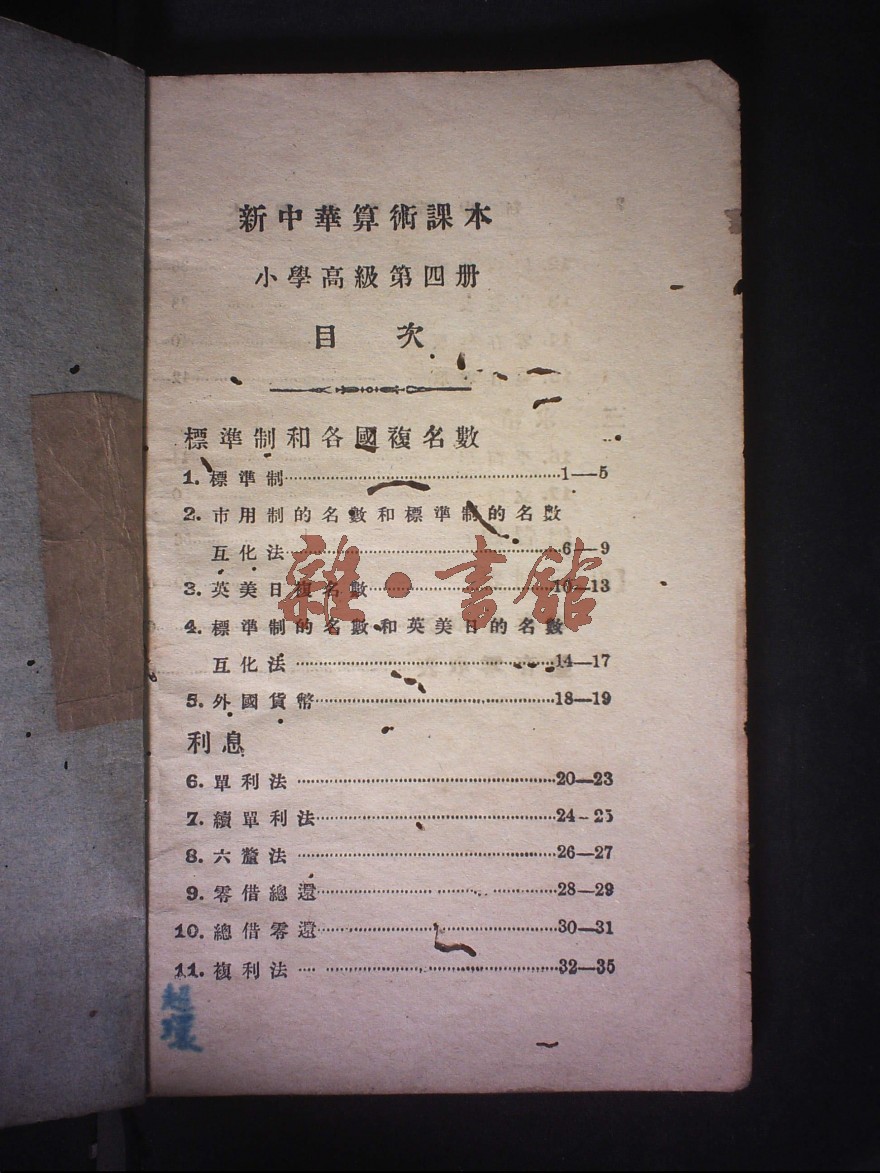 新中華算術課本
小學高級第四册
目 次
標準制和各國複名數
1. 標準制……1—5
2. 市用制的名數和標準制的名數
互化法……6—9
3. 英美日複名數……10—13
4. 標準制的名數和英美日的名數
互化法……14—17
5. 外國貨幣……18—19
利息
6. 單利法……20—23
7. 續單利法……24-25
8. 六釐法……26—27
9. 零借總還……28—29
10. 總借零還……30—31
11. 複利法……32—35
雜·書館